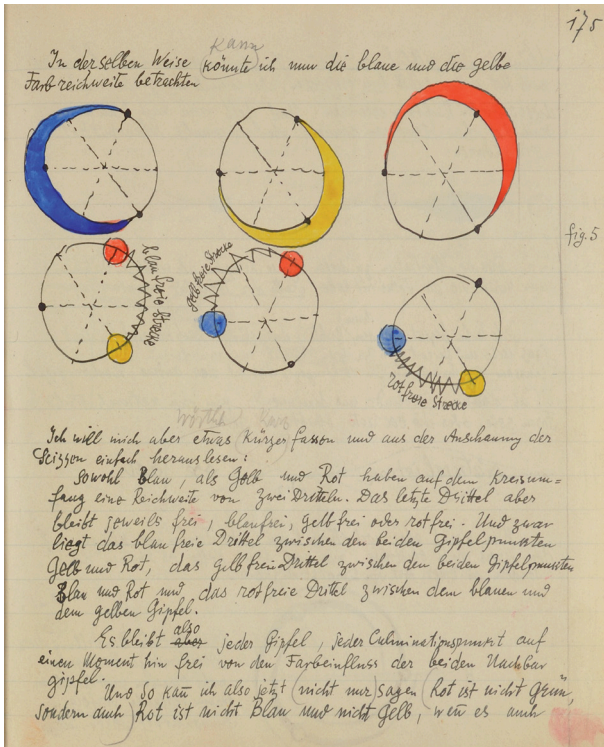 175
kann
In derselben Weise könnte ich nun die blaue und die gelbe
Farbreichweite betrachten
fig. 5
blaufreie Strecke
gelbfreie Strecke
rotfreie Strecke
Ich will mich aber etwas kürzer fassen und aus der Anschauung der
Scizzen einfach herauslesen:
Sowohl Blau, als Gelb und Rot haben auf dem Kreisum=
fang eine Reichweite von zwei Dritteln. Das letzte Drittel aber
bleibt jeweils frei, blaufrei, gelbfrei oder rotfrei. Und zwar
liegt das blaufreie Drittel zwischen den beiden Gipfelpunkten
Gelb und Rot, das gelbfreie Drittel zwischen den beiden Gipfelpunkten
Blau und Rot und das rotfreie Drittel zwischen dem blauen und
dem gelben Gipfel.
also
Es bleibt aber jeder Gipfel, jeder Culminationspunkt auf
einen Moment hin frei von den Farbeinfluss der beiden Nachbar
gipfel.
Und so kann ich also jetzt (nicht nur) sagen (Rot ist nicht Grün,
sondern auch) Rot ist nicht Blau und nicht Gelb, wen es auch